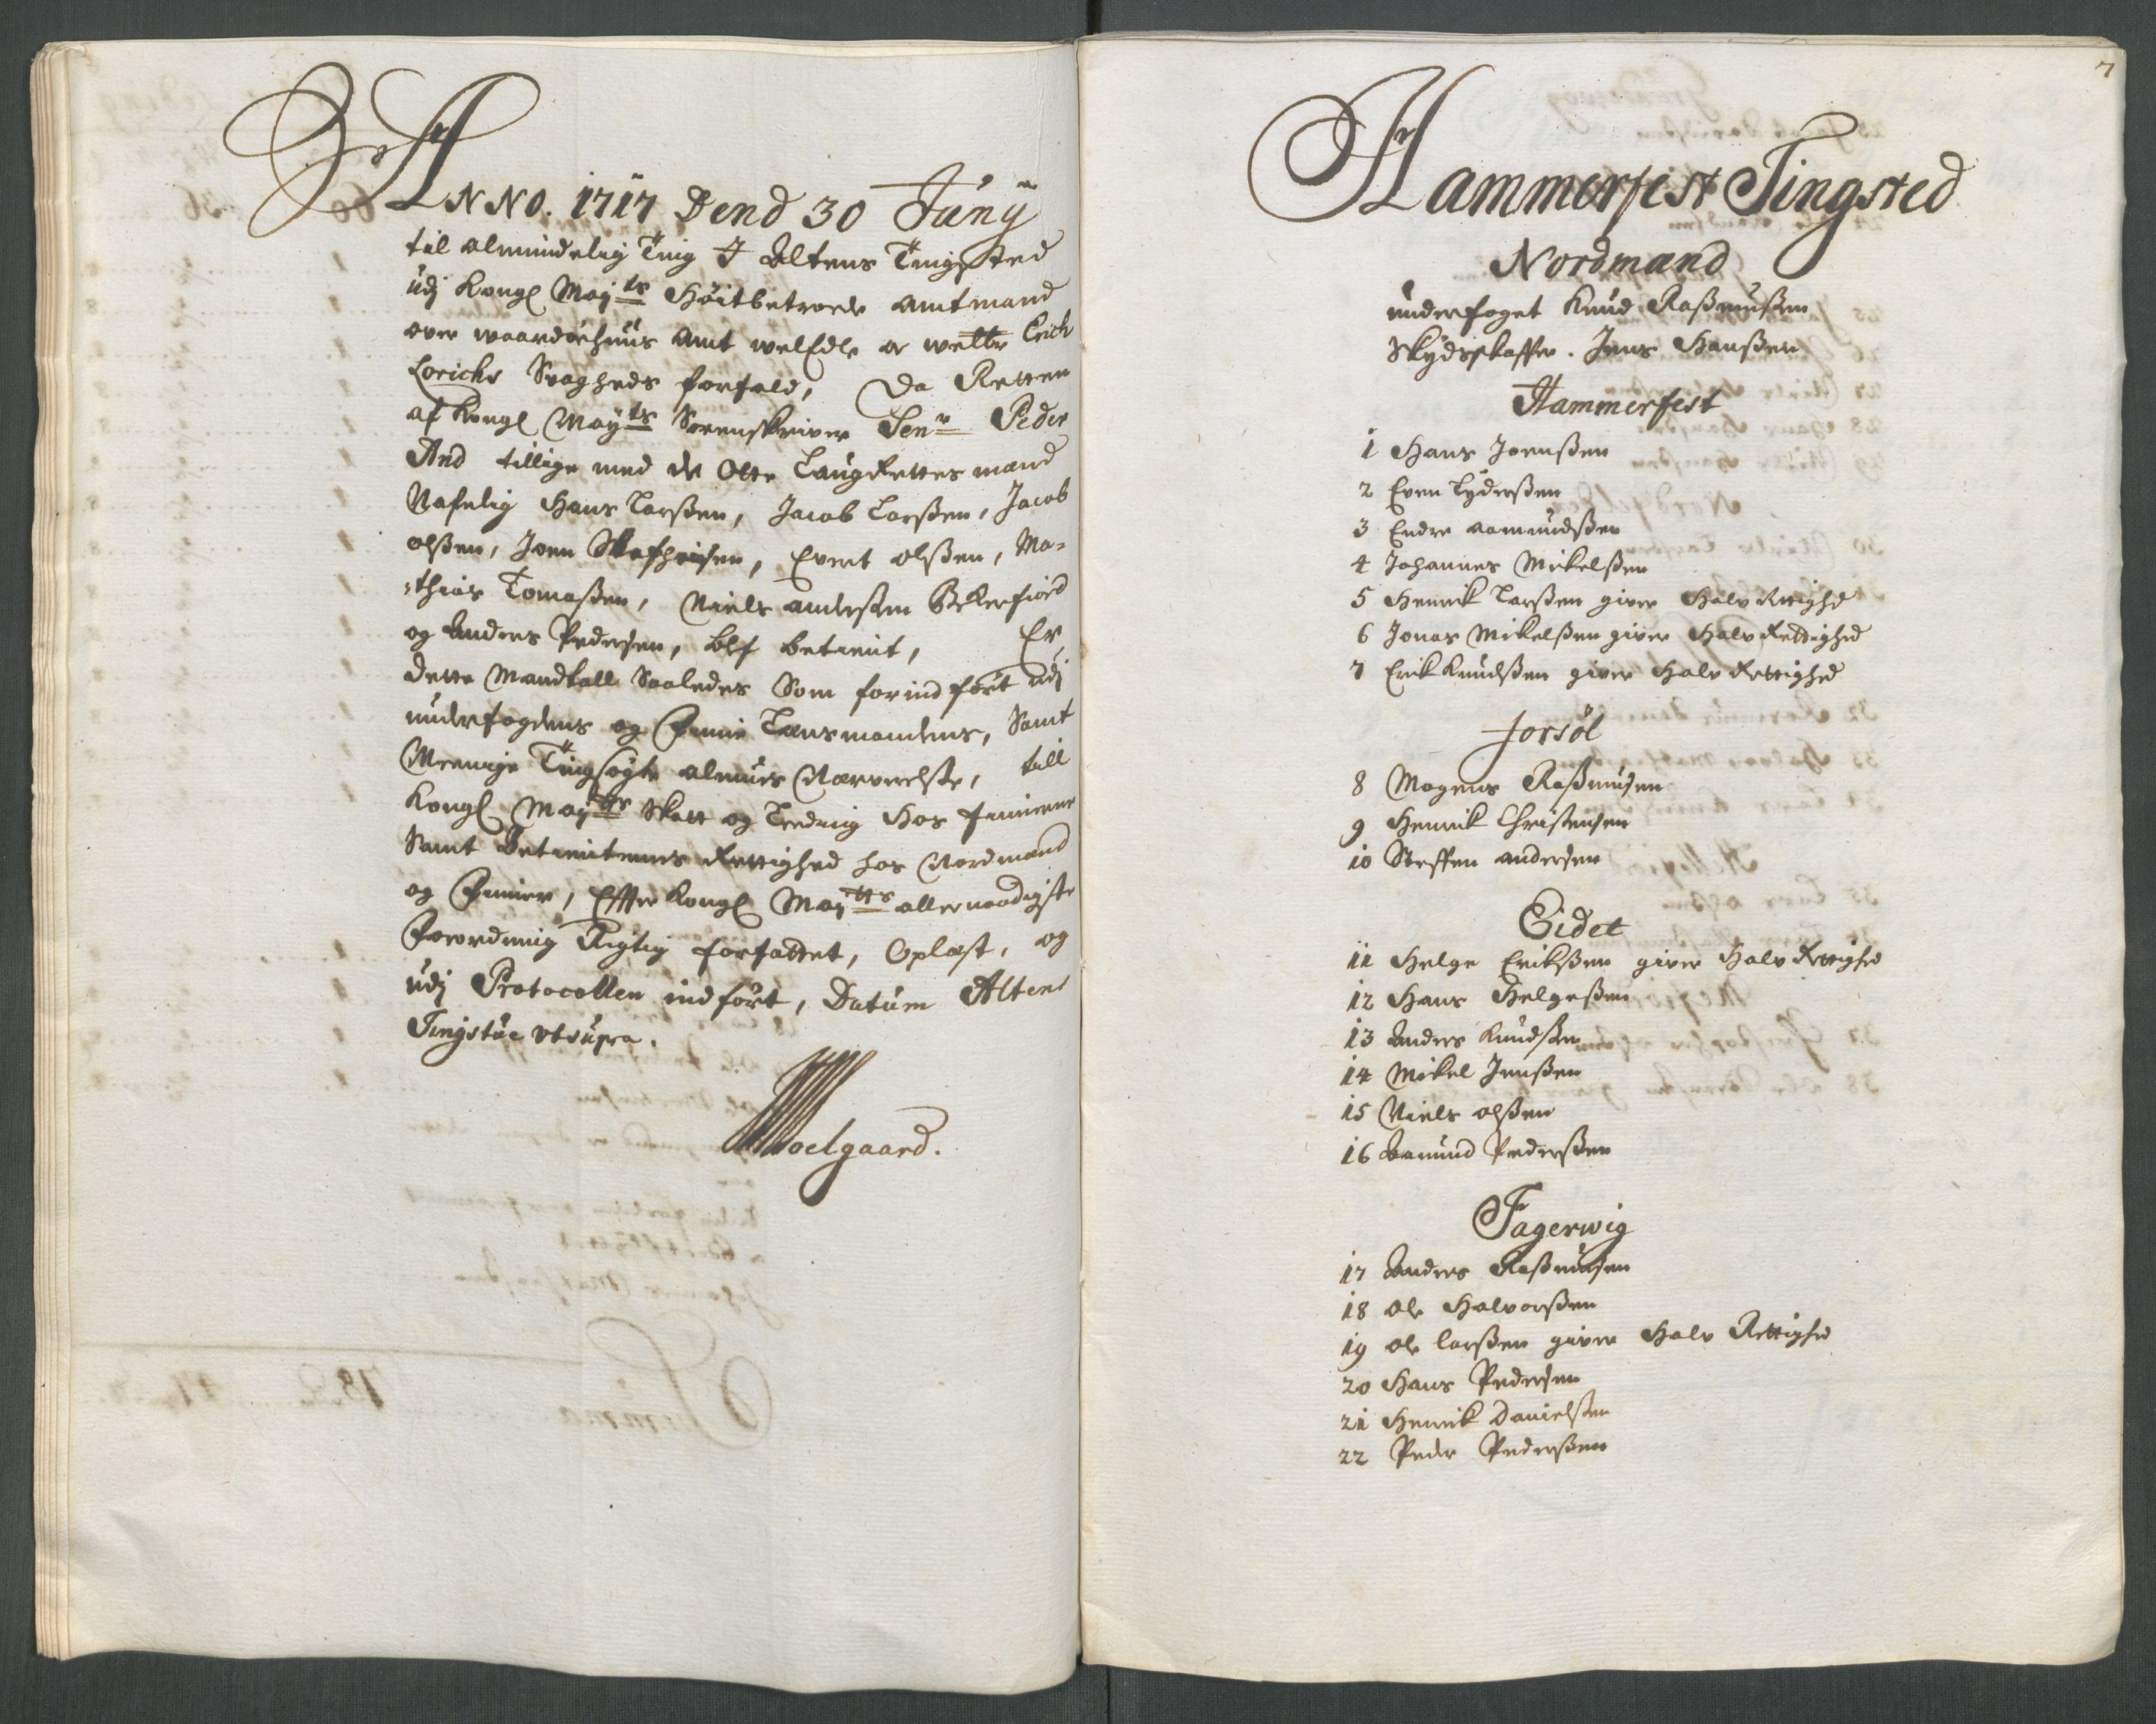 ANNO. 1717 Dend 30 Juny
til almindelig Ting I Altens Tingsted
udj Kongl May.ts Høitbetroede Amtmand
over waardøehuus Amt welEdle og welbr Erich
Lorichs Svagheds forfald, Da Retten
af Kongl May.ts Sorenskriver Sen.r Peder
And tillige med de Otte Laugrettes mænd
Nafnlig Hans Larßen, Jacob Larßen, Jacob
olßen, Joen Stafhensen, Evert olßen, Ma-
-thias Tomaßen, Niels anderßen
og Anders Pedersen, blef betient, Er
dette Mandtall Saaledes Som forindført udj
underfogdens og Finne Lænsmandens, Samt
Meenige Tingsøgte almues Nærverelße, till
Kongl May.tts Skatt og Leeding hos finnerne
Samt Betienternes Rettighed hos Nordmænd
og Finner, Effter Kongl May.tts allernaadigste
Forordning Rigtig forfattet, Oplæst, og
udj Protocollen indført, Datum Altens
Tingstue ut supra.
Noelgaard.
7
Hammerfest Tingsted
Nordmænd
underfoget Knud Raßmußen
Skydsskaffer. Jens Hanßen
Hammerfest
1 Hans Joenßen
2 Even Tyderßen
3 Endre aamundßen
4 Johannes Mickelßen
5 Henrik Larßen giver Halv Rettighd
6 Jonas Mikelßen giver Halv Rettighed
7 Erik Knudßen giver Halv Rettighed
forsøl
8 Mogens Raßmusen
9 Henrik Christensen
10 Steffen andersen
Eidet
11 Helge Erikßen giver Halv Rettighed
12 Hans Helgeßen
13 Anders Knudßen
14 Mikel Jenßen
15 Niels olßen
16 Aamund Pederßen
Fagerwig
17 Anders Raßmusen
18 Ole Halvorßen
19 Ole Larßen giver Halv Rettighed
20 Hans Pedersen
21 Henrik Danielßen
22 Peder Pederßen